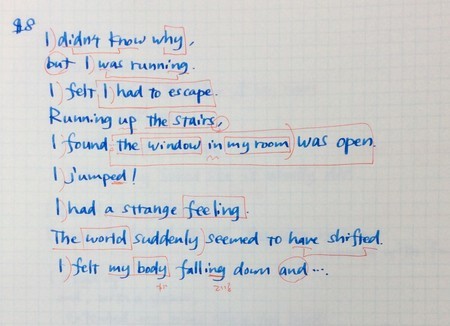 $8
I didn't know why,
but I was running.
I felt I had to escape.
Running up the stairs,
I found the window in my room was open.
I jumped!
I had a strange feeling.
The world suddenly seemed to have shifted.
I felt my body falling down and ....